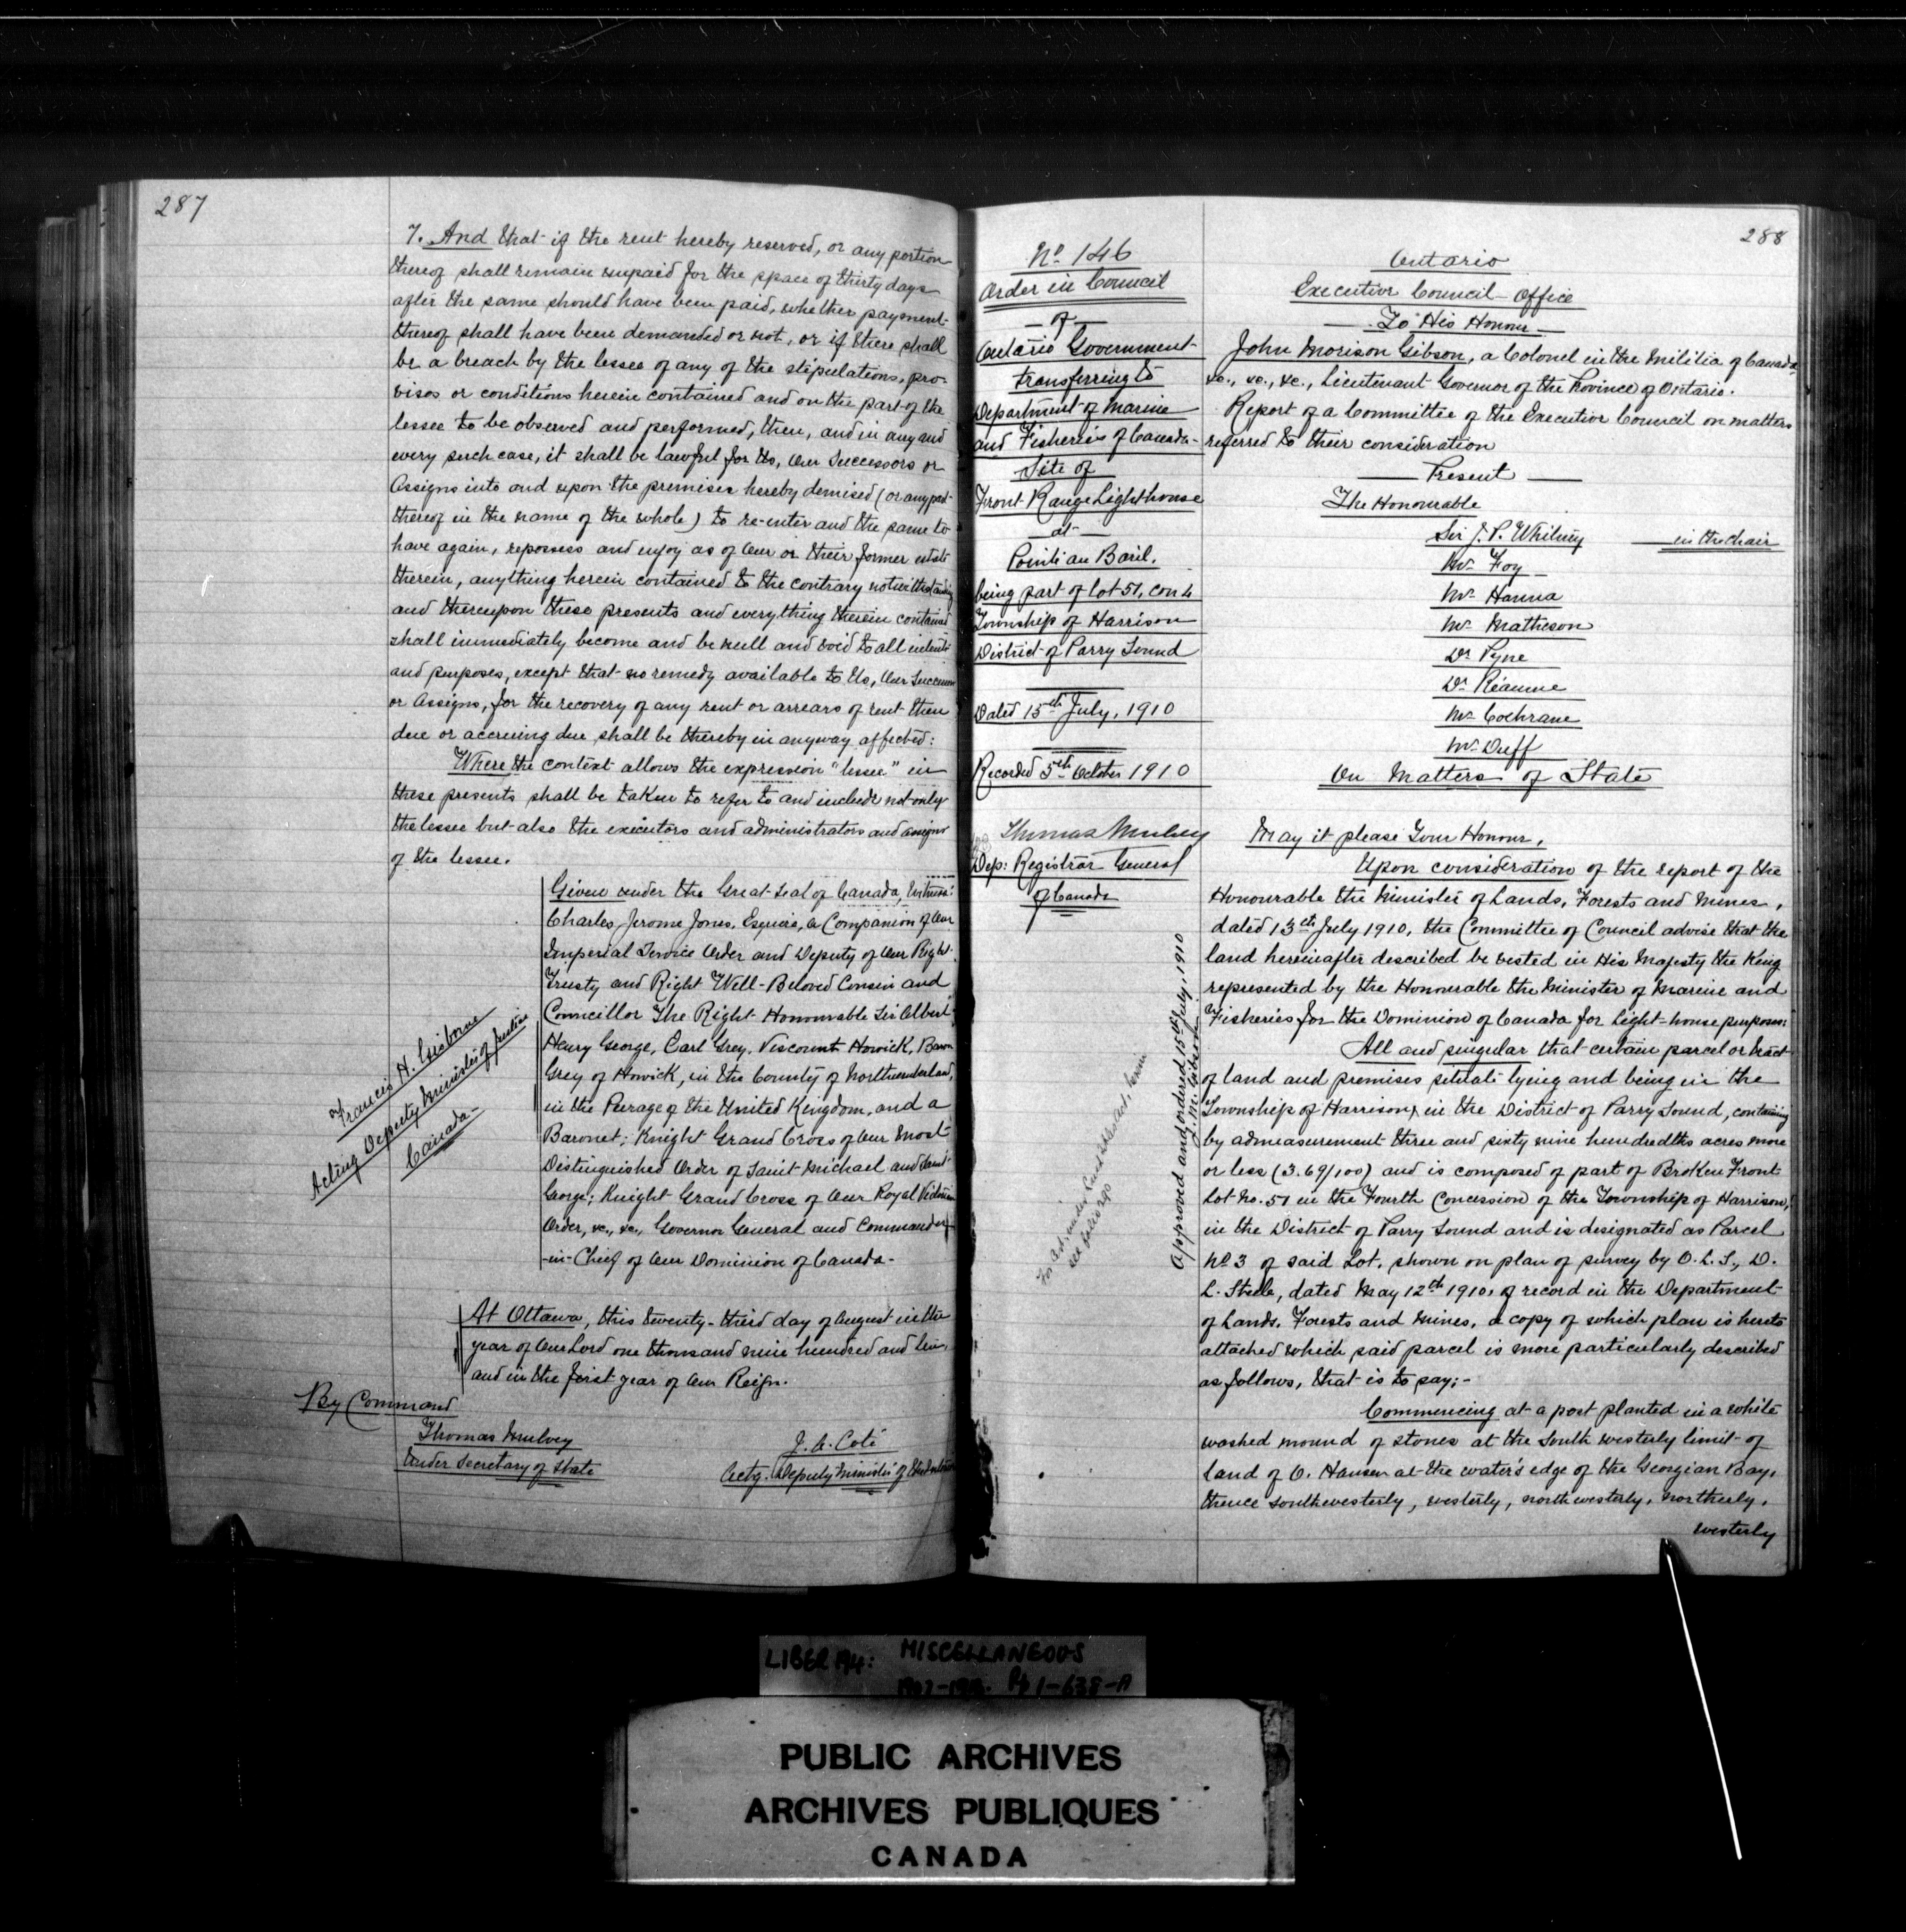 287
7. And that if the rent hereby reserved, or any portion
thereof shall remain unpaid for the space of thirty days
after the same should have been paid, whether payment
thereof shall have been demanded or not, or if there shall
be a breach by the lessee of any of the stipulations, pro-
visos or conditions herein contained and on the part of the
lessee to be observed and performed, then, and in any and
every such case, it shall be lawful for Us, Our Successors or
Assigns into and upon the premises hereby demised (or any part
thereof in the name of the whole) to re-enter and the same to
have again, repossess and enjoy as of Our or their former estate
therein, anything herein contained to the contrary notwithstanding
and thereupon these presents and everything therein contained
shall immediately become and be null and void to all intents
and purposes, except that no remedy available to Us, Our Successors
or Assigns, for the recovery of any rent or arrears of rent then
due or accruing due shall be thereby in anyway affected:
Where the context allows the expression "lessee" in
these presents shall be taken to refer to and include not only
the lessee but also the executors and administrators and assigns
of the lessee.
Given under the Great Seal of Canada, Witness:
Charles Jerome Jones, Esquire, a Companion of Our
Imperial Service Order and Deputy of Our Right
Trusty and Right Well-Beloved Cousin and
Councillor The Right Honourable Sir Albert
Henry George, Earl Grey, Viscount Howick, Baron
Grey of Howick, in the County of Northumberland,
in the Peerage of the United Kingdom, and a
Baronet; Knight Grand Cross of Our Most
Distinguished Order of Saint Michael and Saint
George; Knight Grand Cross of Our Royal Victorian
Order, &c., &c., Governor General and Commander
-in-Chief of Our Dominion of Canada-
Francis H. Gisborne
Acting Deputy Minister of Justice
Canada-
At Ottawa, this twenty-third day of August in the
year of Our Lord one thousand nine hundred and ten,
and in the first year of Our Reign.
By Command
Thomas Mulvey
Under Secretary of State
J. A. Coté
Actg. Deputy Minister of the Interior
288
No. 146
Order in Council
of
Ontario Government
transferring to
Department of Marine
and Fisheries of Canada-
Site of
Front Range Lighthouse
at
Pointe au Baril.
being part of Lot 51, con 4
Township of Harrison
District of Parry Sound
Dated 15th July, 1910
Recorded 5th October 1910
Thomas Mulvey
Dep: Registrar General
of Canada
see folio 290
Approved and ordered 15th July, 1910
J. M. Gibson
Ontario
Executive Council Office
To His Honour
John Morison Gibson, a Colonel in the Militia of Canada
&c., &c., &c., Lieutenant Governor of the Province of Ontario.
Report of a Committee of the Executive Council on matters
referred to their consideration
Present
The Honourable
Sir J. P. Whitney in the chair
Mr Foy
Mr Hanna
Mr Matheson
Dr Pyne
Dr Réaume
Mr Cochrane
Mr Duff
On Matters of State
May it please Your Honour,
Upon consideration of the report of the
Honourable the Minister of Lands, Forests and Mines,
dated 13th July 1910, the Committee of Council advise that the
land hereinafter described be vested in His Majesty the King
represented by the Honourable the Minister of Marine and
Fisheries for the Dominion of Canada for Light-house purposes:
All and singular that certain parcel or tract
of land and premises situate lying and being in the
Township of Harrison, in the District of Parry Sound, containing
by admeasurement three and sixty nine hundredths acres more
or less (3.69/100) and is composed of part of Broken Front
Lot No. 51 in the Fourth Concession of the Township of Harrison,
in the District of Parry Sound and is designated as Parcel
No 3 of said Lot, shown on plan of survey by O. L. S., D.
L. Steele, dated May 12th 1910, of record in the Department
of Lands, Forests and Mines, a copy of which plan is hereto
attached which said parcel is more particularly described
as follows, that is to say;-
Commencing at a post planted in a white
washed mound of stones at the South westerly limit of
land of O. Hansen at the water's edge of the Georgian Bay,
thence southwesterly, westerly, north westerly, northerly,
westerly
LIBER 194: MISCELLANEOUS
Pp 1-638-A
PUBLIC ARCHIVES
ARCHIVES PUBLIQUES
CANADA